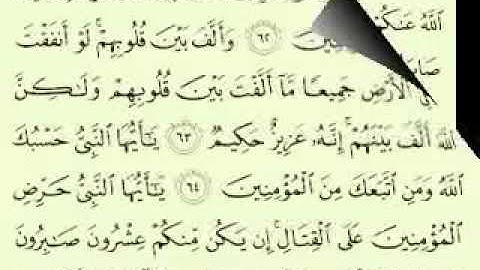 ٱللَّهُ عَنكُمْ ٦٢ وَأَلَّفَ بَيْنَ قُلُوبِهِمْ ۚ لَوْ أَنفَقْتَ
ٱلْأَرْضِ جَمِيعًا مَّآ أَلَّفْتَ بَيْنَ قُلُوبِهِمْ وَلَٰكِنَّ
ٱللَّهَ أَلَّفَ بَيْنَهُمْ ۚ إِنَّهُۥ عَزِيزٌ حَكِيمٌ ٦٣ يَٰٓأَيُّهَا ٱلنَّبِىُّ حَسْبُكَ
ٱللَّهُ وَمَنِ ٱتَّبَعَكَ مِنَ ٱلْمُؤْمِنِينَ ٦٤ يَٰٓأَيُّهَا ٱلنَّبِىُّ حَرِّضِ
ٱلْمُؤْمِنِينَ عَلَى ٱلْقِتَالِ ۚ إِن يَكُن مِّنكُمْ عِشْرُونَ صَٰبِرُونَ